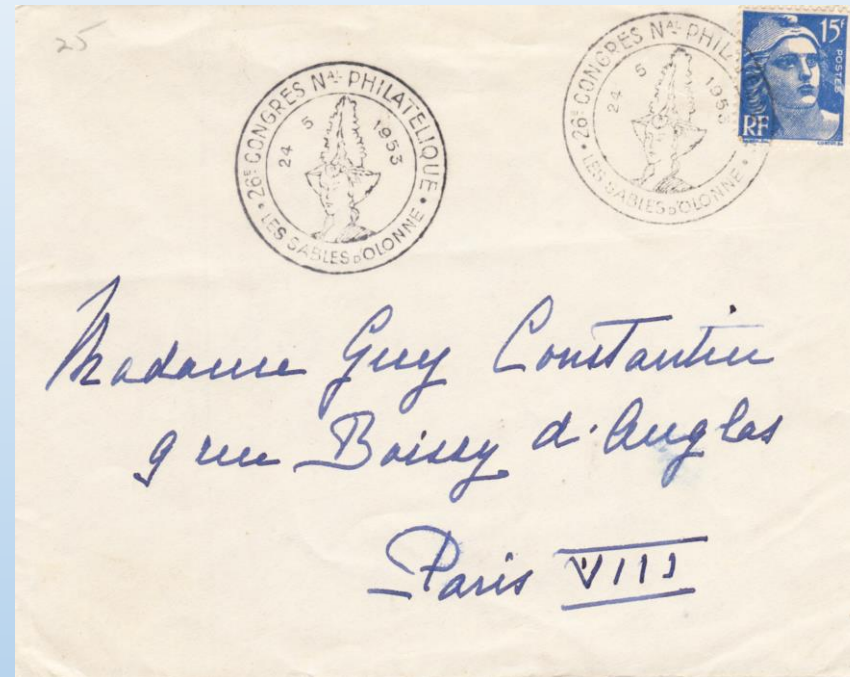 25
26E CONGRES NAL PHILATELIQUE
24 5 1953
LES SABLES D'OLONNE
26E CONGRES NAL PHILAT
24 5 1953
LES SABLES D'OLONNE
15F
POSTES
RF
Madame Guy Constantin
9 rue Boissy d'Anglas
Paris VIII